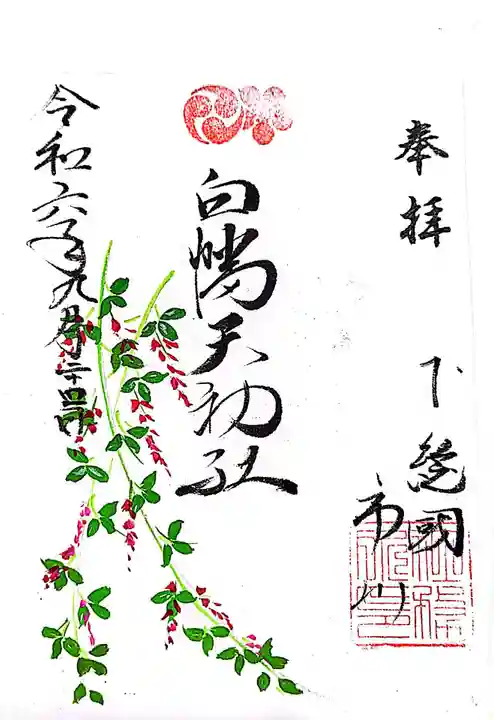 奉拝
下總國
市川
白幡天神社
令和六年九月二十四日